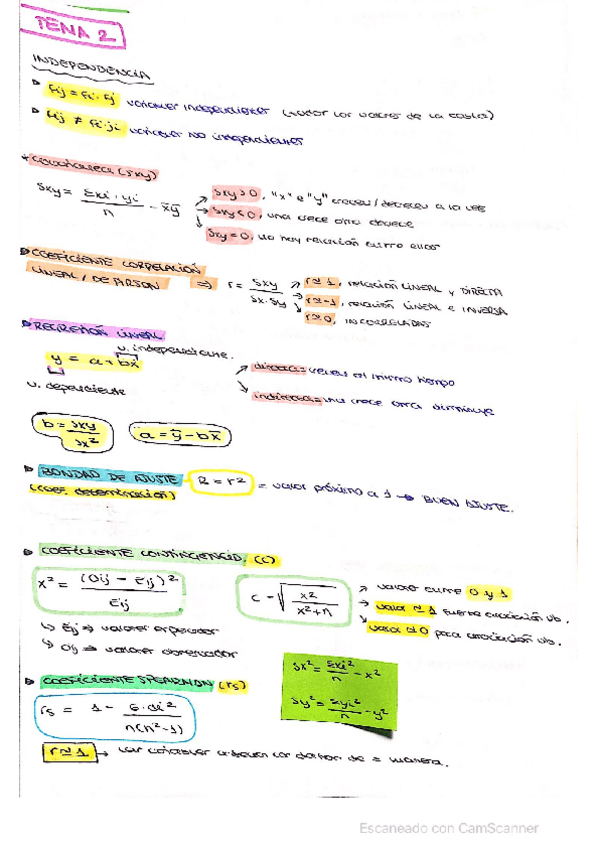 TEMA 2
INDEPENDENCIA
fij = fi · fj variables independientes (todos los valores de la tabla)
fij ≠ fi·ji variables NO independientes
* Covarianza (Sxy)
Sxy = Σxi · yi / n - x̄ȳ
Sxy > 0, "x" e "y" crecen/decrecen a la vez
Sxy < 0, una crece otra decrece
Sxy = 0, no hay relación entre ellas
COEFICIENTE CORRELACIÓN
LINEAL / DE PEARSON ⇒ r = Sxy / Sx · Sy
r ≃ 1, relación LINEAL y DIRECTA
r ≃ -1, relación LINEAL e INVERSA
r ≃ 0, INCORRELADAS
REGRESIÓN LINEAL
v. independiente.
y = a + bx
v. dependiente
directa = crecen al mismo tiempo
indirecta = una crece otra disminuye
b = Sxy / Sx²
a = ȳ - bx̄
BONDAD DE AJUSTE R = r² = valor próximo a 1 → BUEN AJUSTE.
(coef. determinación)
COEFICIENTE CONTINGENCIA (C)
x² = (Oij - Eij)² / Eij
c = √ x² / x² + n
valores entre 0 y 1
valor ≃ 1 fuerte asociación vb.
valor ≃ 0 poca asociación vb.
↳ Eij ⇒ valores esperados
↳ Oij ⇒ valores observados
Sx² = Σxi² / n - x²
Sy² = Σyi² / n - y²
COEFICIENTE SPEARMAN (rs)
rs = 1 - 6·di² / n(n²-1)
r ≃ 1 → las variables ordenan los datos de = manera.
Escaneado con CamScanner